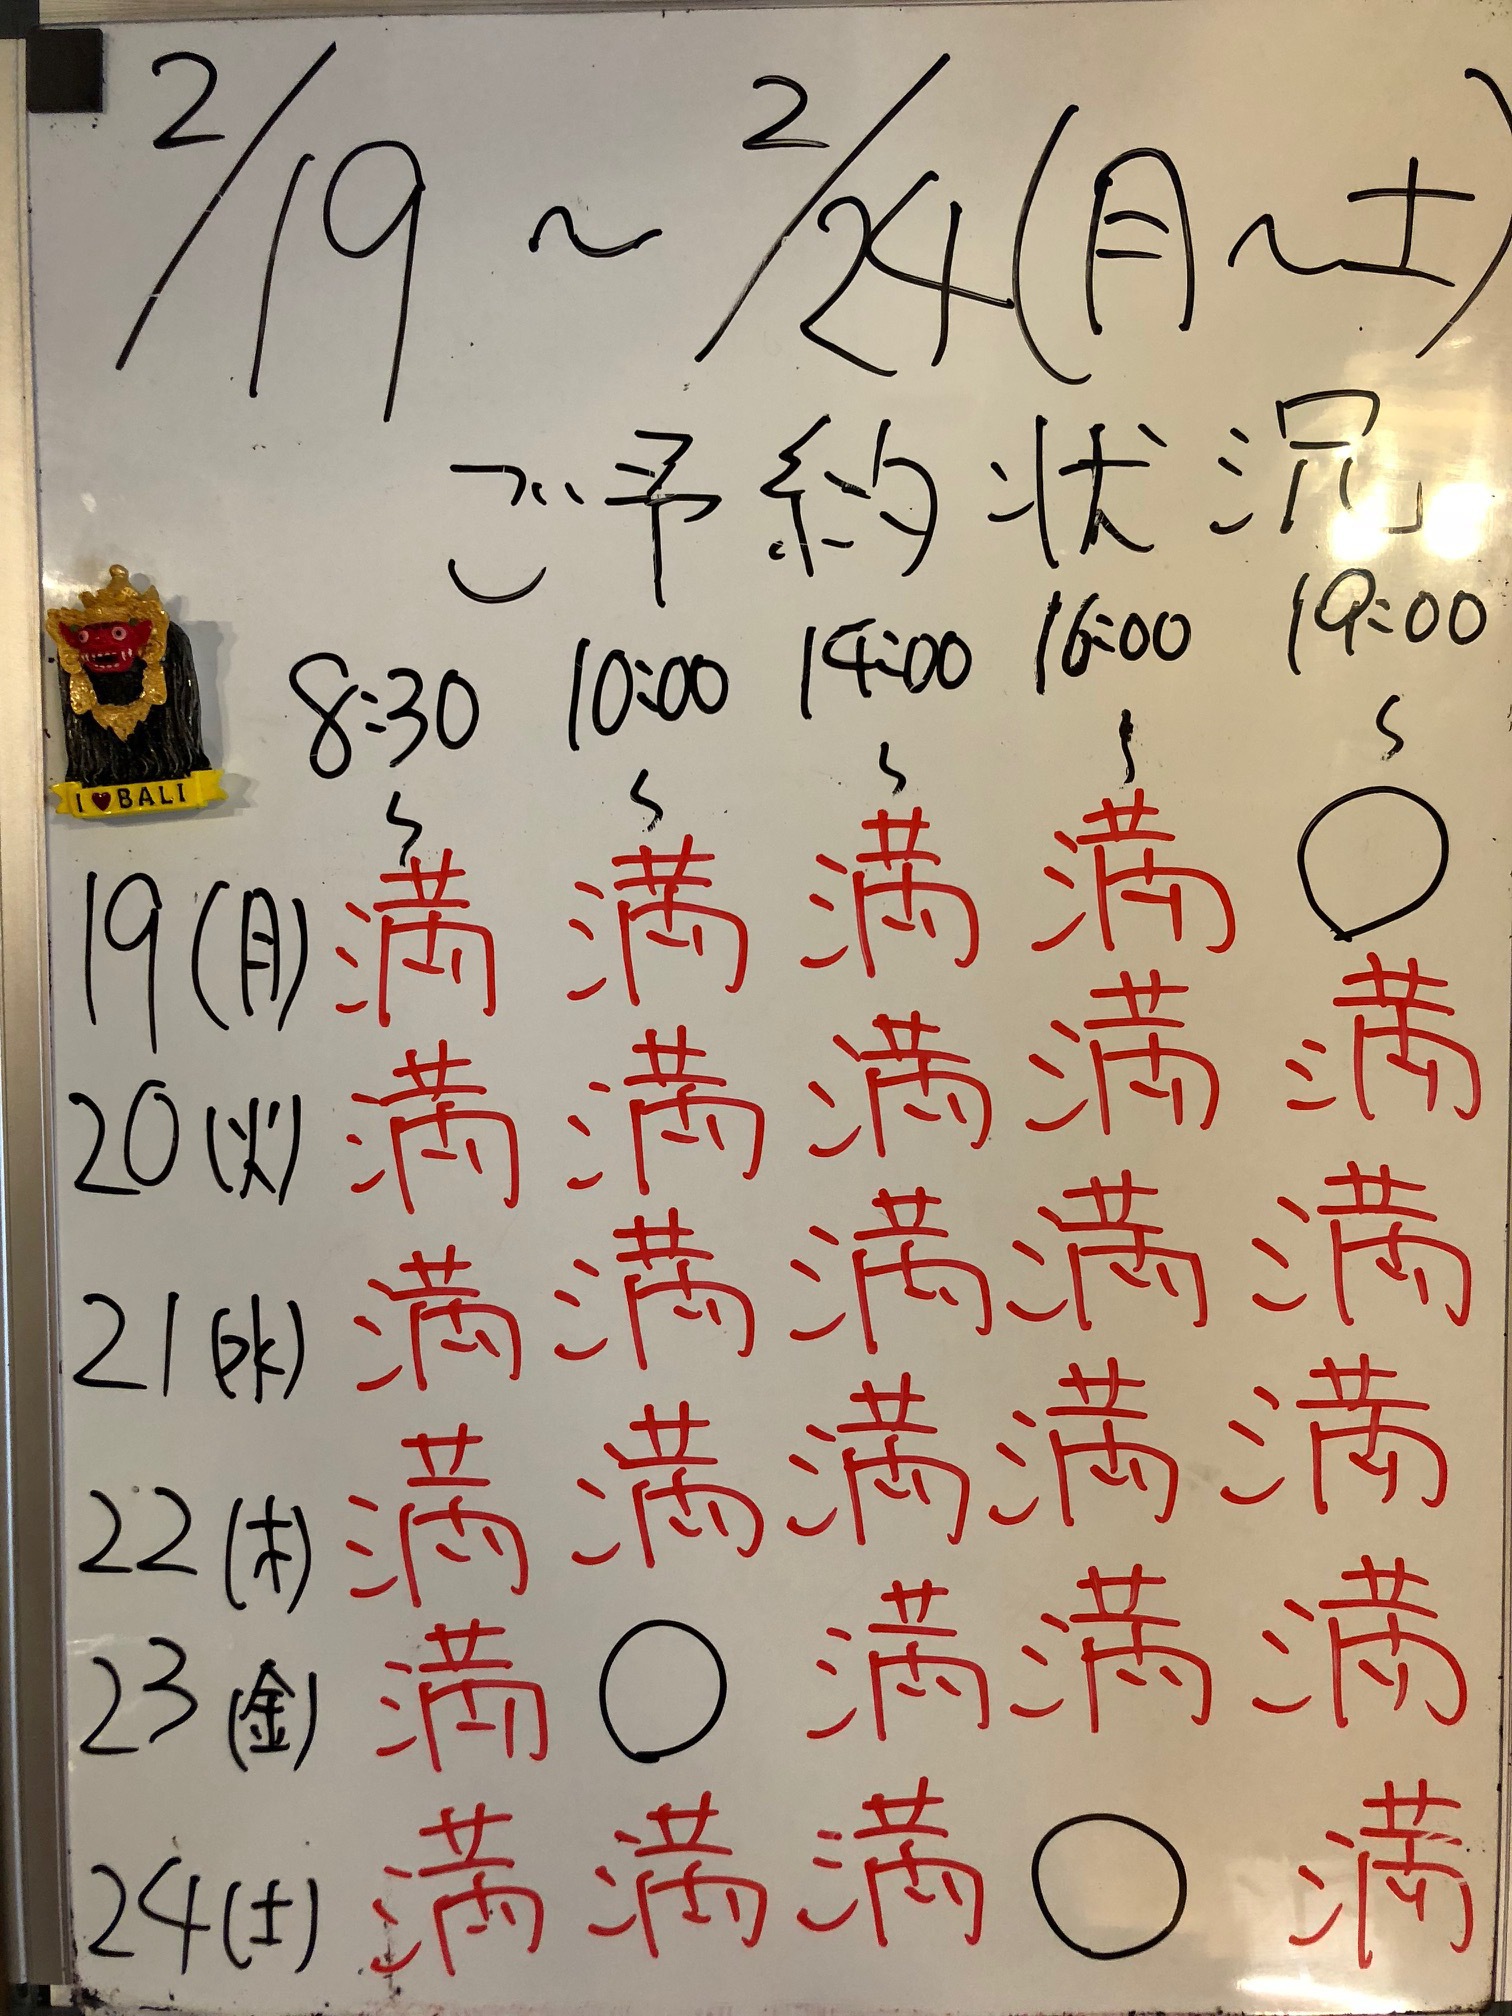 2/19 ~ 2/24(月~土)
ご予約状況
8:30~ 10:00~ 14:00~ 16:00~ 19:00~
I ♥ BALI
19(月) 満 満 満 満 ○
20(火) 満 満 満 満 満
21(水) 満 満 満 満 満
22(木) 満 満 満 満 満
23(金) 満 ○ 満 満 満
24(土) 満 満 満 ○ 満